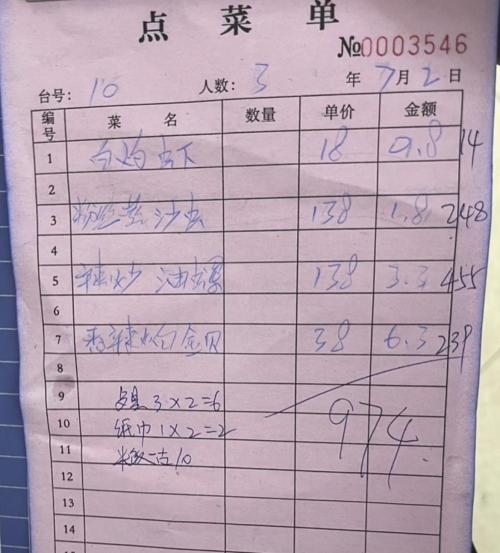 点菜单
№0003546
台号： 10 人数： 3 年 7 月 2 日
编号 菜名 数量 单价 金额
1 白灼虾 18 0.8 14
2
3 粉丝蒸沙虫 138 1.8 248
4
5 辣炒油螺 138 3.3 455
6
7 香辣炒金贝 38 6.3 239
8
9 3×2=6
10 纸巾1×2=2
11 10
974
12
13
14